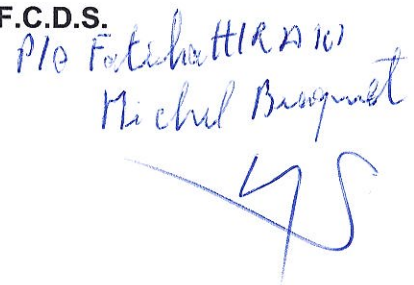 F.C.D.S.
P/o Fatiha HIRAKI
Michel Busquet